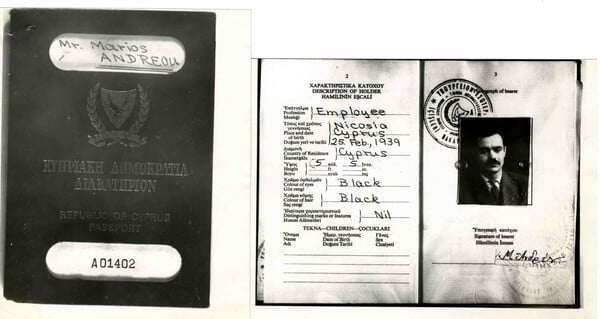 Mr. Marios
ANDREOU
ΚΥΠΡΙΑΚΗ ΔΗΜΟΚΡΑΤΙΑ
ΔΙΑΒΑΤΗΡΙΟΝ
REPUBLIC OF CYPRUS
PASSPORT
A01402
2
ΧΑΡΑΚΤΗΡΙΣΤΙΚΑ ΚΑΤΟΧΟΥ
DESCRIPTION OF HOLDER
HAMİLİNİN EŞCALİ
Ἐπάγγελμα
Profession
Mesleği
Employee
Τόπος καὶ χρόνος
γεννήσεως
Place and date
of birth
Doğum yeri ve tarihi
Nicosia
Cyprus
25. Feb, 1939
Διαμονή
Country of Residence
İkametgâhı
Cyprus
Ὕψος
Height
Boyu
5
ft.
5
in.
Χρῶμα ὀφθαλμῶν
Colour of eyes
Göz rengi
Black
Χρῶμα κόμης
Colour of hair
Saç rengi
Black
Ἰδιαίτερα χαρακτηριστικά
Distinguishing marks or features
Hususi Alâmetleri
Nil
ΤΕΚΝΑ—CHILDREN—ÇOCUKLARI
Ὄνομα Ἡμερ. γεννήσεως Γένος
Name Date of Birth Sex
Adı Doğum Tarihi Cinsiyeti
3
of bearer
Ὑπογραφὴ κατόχου
Signature of bearer
Hâmilinin İmzası